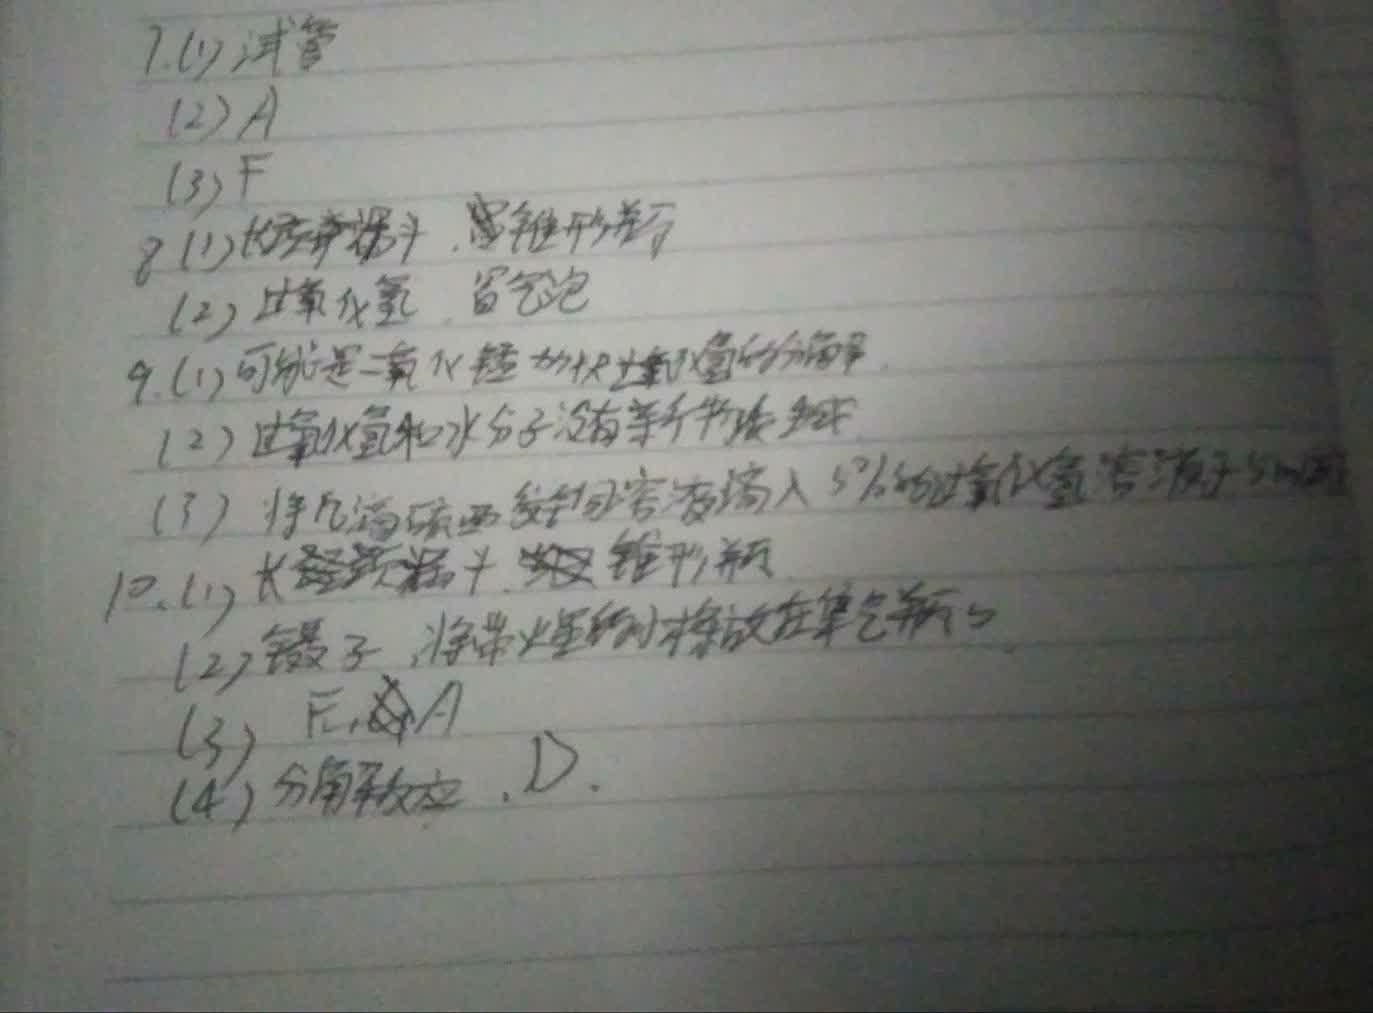 7.(1)试管
(2)A
(3)F
8(1)长颈漏斗.锥形瓶
(2)过氧化氢.冒气泡
9.(1)可能是二氧化锰加快过氧化氢的分解.
(2)过氧化氢和水分子没有
(3)将几滴溶液滴入5%的过氧化氢溶液于
10.(1)长颈漏斗.锥形瓶
(2)镊子,将带火星的小木条放在集气瓶口
(3) F,A
(4)分解反应.D.